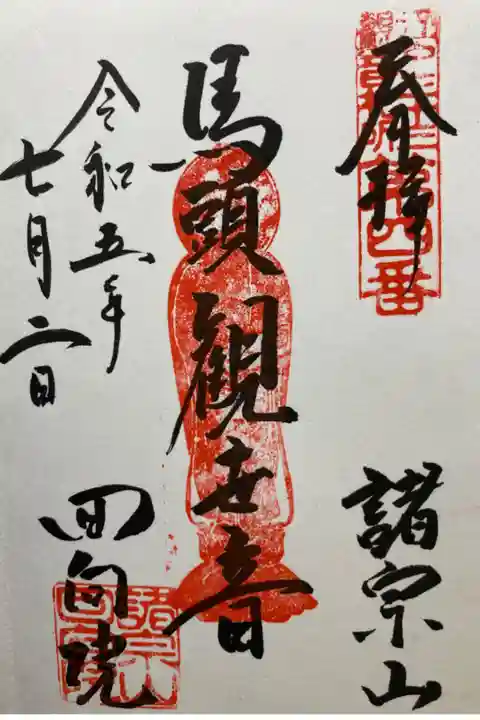 奉拝
諸宗山
馬頭観世音
令和五年
七月二日
回向院